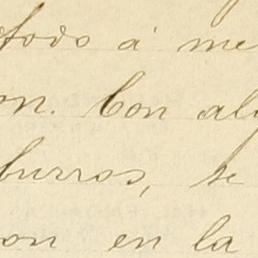 todo á me
on. Con alg
burros, se
on en la